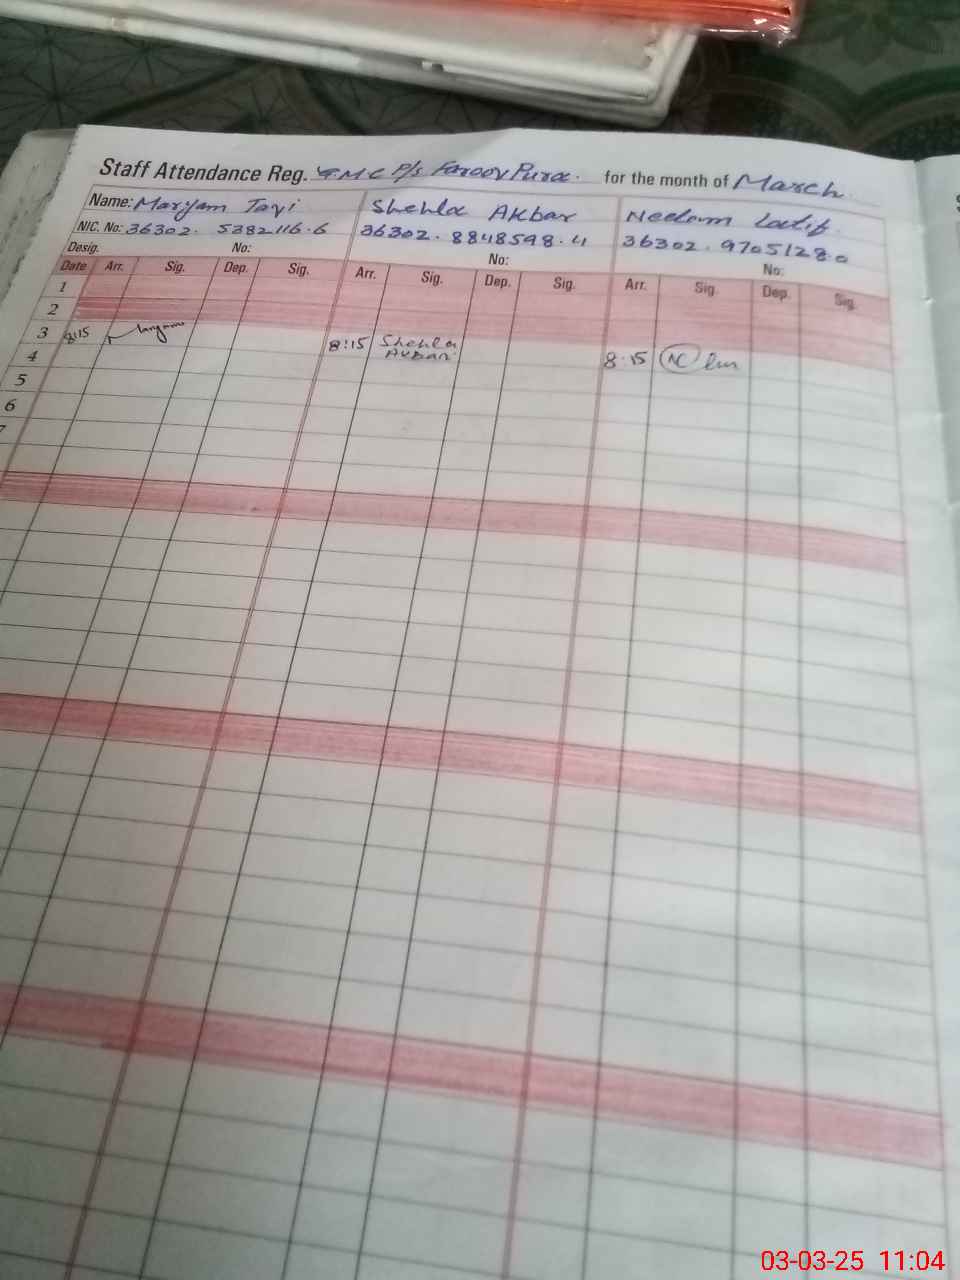 Staff Attendance Reg. GMC P/S Farooq Pura. for the month of March.
Name: Maryam Tayi Shehla Akbar Neelam Latif.
NIC. No: 36302. 5382116.6 36302. 8848598.4 36302. 97051280
Desig. No: No: No:
Date Arr. Sig. Dep. Sig. Arr. Sig. Dep. Sig. Arr. Sig. Dep. Sig.
1
2
3 8:15 Maryam 8:15 Shehla Akbar 8:15
4
5
6
7
03-03-25 11:04